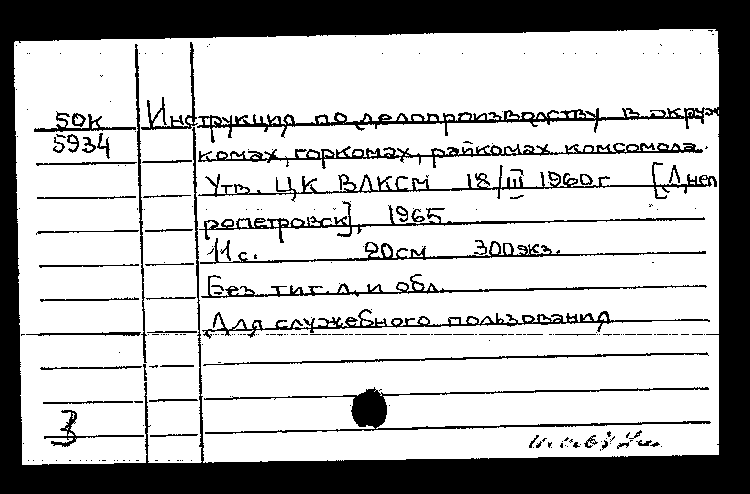 50К
5934
Инструкция по делопроизводству в окруж
комах, горкомах, райкомах комсомола.
Утв. ЦК ВЛКСМ 18/III 1960г [Днеп
ропетровск], 1965.
11 с. 20см 300экз.
Без тит. л. и обл.
Для служебного пользования
З